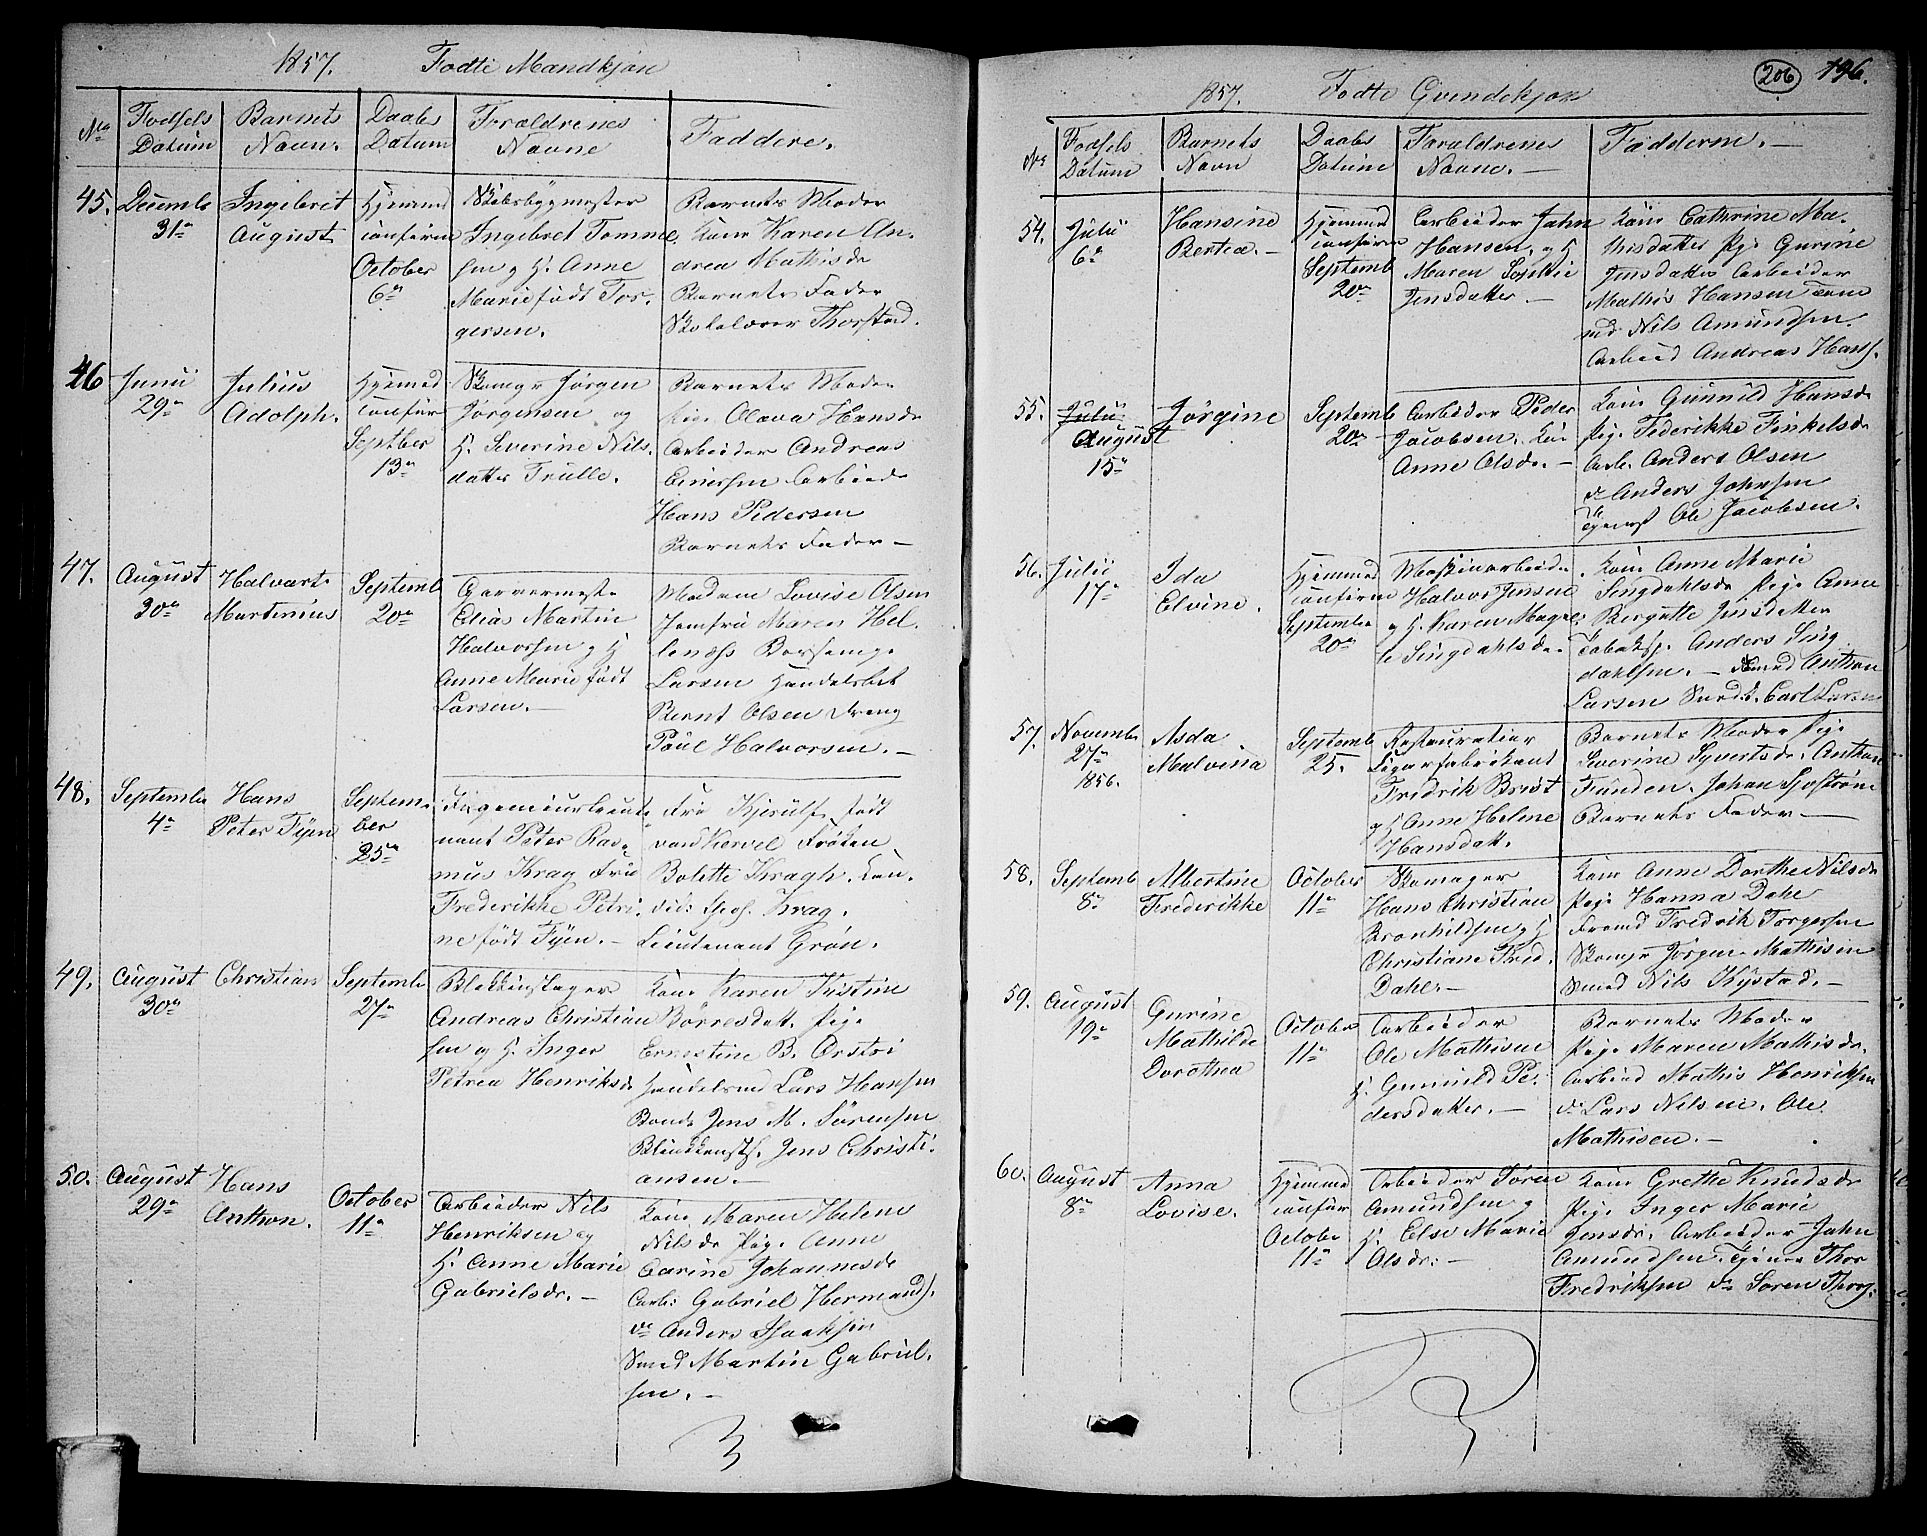 1857. Fødte Mandkjøn
No
Fødsels
Datum
Barnets
Navn.
Daabs
Datum
Forældrenes
Navne
Faddere.
45.
Decembr
31te
Ingebret
August
Hjemmed
confirm
October
6te
Skibsbygmester
Ingebret Tomme
sen og H. Anne
Marie født Tor-
gersen.
Barnets Moder
Kone Karen An-
drea Mathisdr
Barnets Fader
Skolelærer Thorstad.
46
Junii
29de
Julius
Adolph.
Hjemmed
confir
Septber
13de
Skomgr Jørgen
Jörgensen og
H. Severine Nils-
datter Trulle.
Barnets Moder
Pige Olava Hansdr
Arbeider Andreas
Einersen Arbeidr
Hans Pedersen
Barnets Fader –
47.
August
30te
Halvart
Martinius
Septemb
20de
Garvermester
Elias Martin
Halvorsen og H
Anne Marie født
Larsen. –
Madam Lovise Olsen
Jomfru Maren Hel-
Larsen Handelsbet
Bernt Olsen Dreng
Paul Halvorsen. –
48.
Septembr
4de
Hans
Peter Fyen
Septem-
ber
25de
Ingenieurlieute
nant Peter Ras-
mus Krag Fru
Frederikke Petri-
ne født Fyen. –
Fru Kjerulf født
Frøken
Bolette Kragh. Can-
did. theol. Krag.
Lieutenant Grøn.
49.
August
30te
Christian
Septembr
27de
Blikkenslager
Andreas Christian
sen og H. Inger
Petrea Henriksdr
Kone Karen Kristine
Børresdatt. Pige
Ernestine B. Ørstri
Handelsmd Lars Hansen
Bonde Jens M. Sørensen
Blikkensl. Jens Christi-
ansen. –
50.
August
29de
Hans
Anthon.
October
11te
Arbeider Nils
Henriksen og
H. Anne Marie
Gabrielsdr. –
Kone Maren Helene
Nilsdr Pige Anne
Carine Johannesdr
Arb: Gabriel Hermands.
do Anders Isaaksen
Smed Martin Gabriel-
sen. –
206 196.
1857. Fødte Qvindekjøn
No
Fødsels
Datum
Barnets
Navn
Daabs
Datum
Forældrenes
Navne. –
Fadderne. –
54.
Julii
6te
Hansine
Bertea. –
Hjemmed
confirm
Septemb
20de
Arbeider John
Hansen og H
Maren Sophie
Jensdatter. –
Kone Cathrine Ma-
thisdatter Pige Gurine
Jensdatter Arbeider
Mathis Hansen Tøm
md Nils Amundsen.
Arbeid Andreas Hans.
55.
Julii
August
15de
Jörgine
Septemb
20de
Arbeider Peder
Jacobsen. Kone
Anne Olsdr. –
Kone Gunnild Hansdr
Pige Federikke Finkelsdr
Arb. Anders Olsen
do Anders Johnsen
Tjenest Ole Jacobsen.
56.
Julii
17de
Ida
Elvine.
Hjemmed
confirm
Septembr
20de
Maskinarbeider
Halvor Jensen
og H. Karen Magre-
te Singdahlsdr
Kone Anne Marie
Singdahlsdr Pige Anne
Bergitte Jensdatter
Tobaksp. Anders Sing-
dahlsen. – Smed Anthon
Larsen Smedk. Carl Larsen
57.
Novembr
27de
1856.
Asda
Malvina
Septemb
25.
Restauratiør
Cigarfabrikant
Fredrik Brest
og H Anne Helene
Hansdatt.
Barnets Moder Pige
Severine Syvertsdr. Anthon
Funden. Johan Sjøstrøm
Barnets Fader –
58.
Septemb
8de
Albertine
Frederikke
October
11te
Skomager
Hans Christian
Bronhildsen og H
Christiane Fred.
Dahl. –
Kone Anne Dorthe Nilsdr
Pige Hanna Dahl
Fredrik Torgersen
Skomgr Jørgen Mathisen
Smed Nils Kystad. –
59.
August
19de
Gurine
Mathilde
Dorothea
October
11te
Arbeider
Ole Mathisen
H. Gunnild Pe-
dersdatter. –
Barnets Moder
Pige Maren Mathisdr.
Arbeid Mathis Henriksen
do Lars Nilsen. Ole
Mathisen. –
60.
August
8de
Anna
Lovise.
Hjemme
confir
October
11te
Arbeider Søren
Amundsen og
H. Else Marie
Olsdr: –
Kone Grethe Knudsdr
Pige Inger Marie
Jensdr. Arbeider John
Amundsen. Tjener Thor
Fredriksen do Søren Thors.